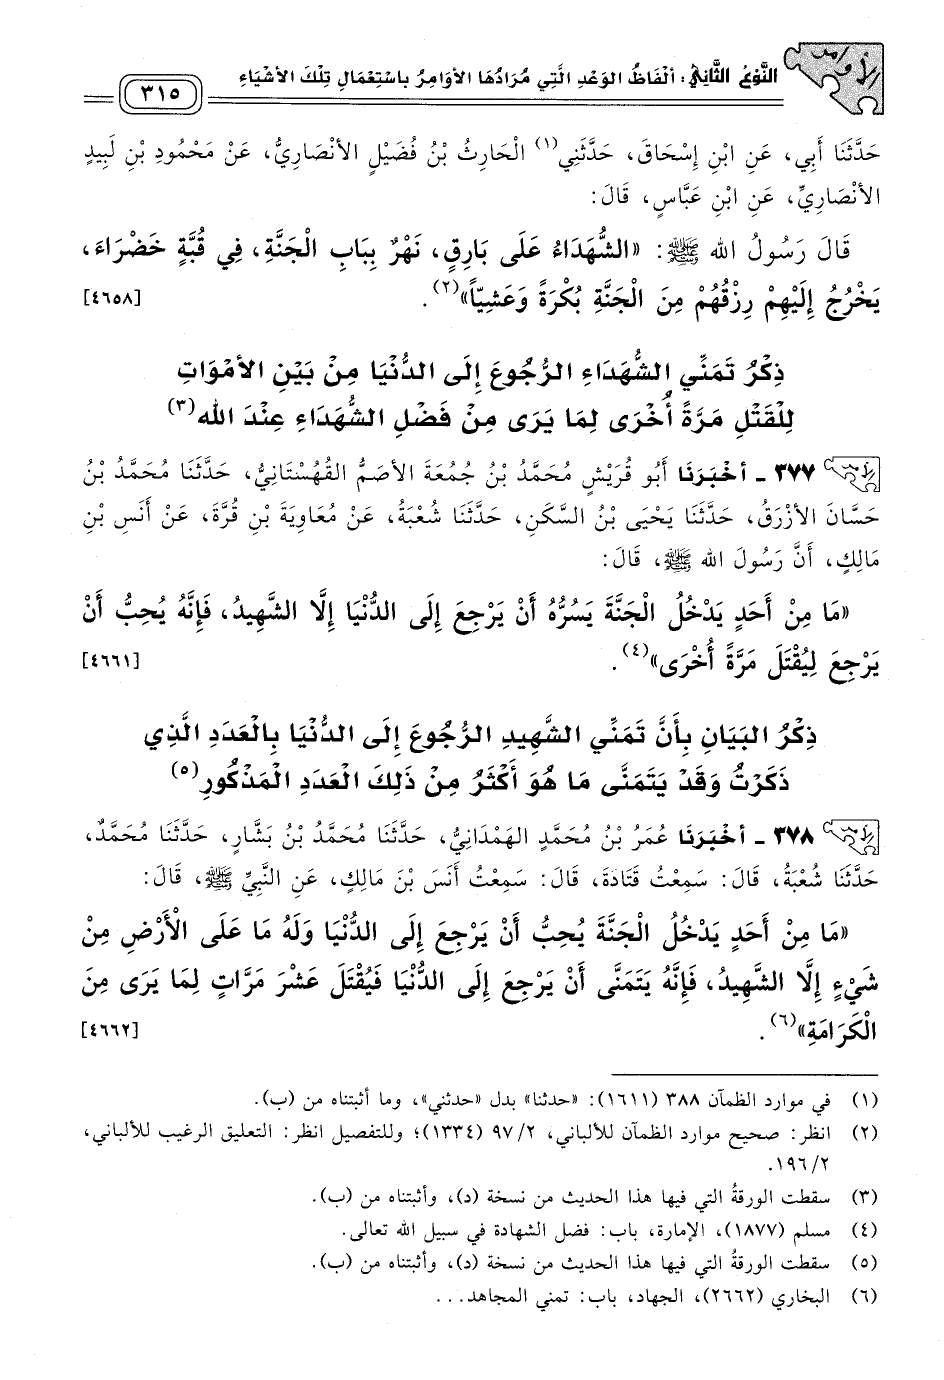 الأوامر
النَّوْعُ الثَّانِي: أَلْفَاظُ الوَعْدِ الَّتِي مُرَادُهَا الأَوَامِرُ بِاسْتِعْمَالِ تِلْكَ الأَشْيَاءِ
٣١٥
حَدَّثَنَا أَبِي، عَنِ ابْنِ إِسْحَاقَ، حَدَّثَنِي(١) الْحَارِثُ بْنُ فُضَيْلٍ الأَنْصَارِيُّ، عَنْ مَحْمُودِ بْنِ لَبِيدٍ
الأَنْصَارِيِّ، عَنِ ابْنِ عَبَّاسٍ، قَالَ:
قَالَ رَسُولُ الله ﷺ: «الشُّهَدَاءُ عَلَى بَارِقٍ، نَهْرٌ بِبَابِ الْجَنَّةِ، فِي قُبَّةٍ خَضْرَاءَ،
يَخْرُجُ إِلَيْهِمْ رِزْقُهُمْ مِنَ الْجَنَّةِ بُكْرَةً وَعَشِيّاً»(٢). [٤٦٥٨]
ذِكْرُ تَمَنِّي الشُّهَدَاءِ الرُّجُوعَ إِلَى الدُّنْيَا مِنْ بَيْنِ الأَمْوَاتِ
لِلْقَتْلِ مَرَّةً أُخْرَى لِمَا يَرَى مِنْ فَضْلِ الشُّهَدَاءِ عِنْدَ الله(٣)
٣٧٧ - أَخْبَرَنَا أَبُو قُرَيْشٍ مُحَمَّدُ بْنُ جُمُعَةَ الأَصَمُّ القُهُسْتَانِيُّ، حَدَّثَنَا مُحَمَّدُ بْنُ
حَسَّانَ الأَزْرَقُ، حَدَّثَنَا يَحْيَى بْنُ السَّكَنِ، حَدَّثَنَا شُعْبَةُ، عَنْ مُعَاوِيَةَ بْنِ قُرَّةَ، عَنْ أَنَسِ بْنِ
مَالِكٍ، أَنَّ رَسُولَ الله ﷺ، قَالَ:
«مَا مِنْ أَحَدٍ يَدْخُلُ الْجَنَّةَ يَسُرُّهُ أَنْ يَرْجِعَ إِلَى الدُّنْيَا إِلَّا الشَّهِيدُ، فَإِنَّهُ يُحِبُّ أَنْ
يَرْجِعَ لِيُقْتَلَ مَرَّةً أُخْرَى»(٤). [٤٦٦١]
ذِكْرُ البَيَانِ بِأَنَّ تَمَنِّي الشَّهِيدِ الرُّجُوعَ إِلَى الدُّنْيَا بِالْعَدَدِ الَّذِي
ذَكَرْتُ وَقَدْ يَتَمَنَّى مَا هُوَ أَكْثَرُ مِنْ ذَلِكَ العَدَدِ المَذْكُورِ(٥)
٣٧٨ - أَخْبَرَنَا عُمَرُ بْنُ مُحَمَّدٍ الهَمْدَانِيُّ، حَدَّثَنَا مُحَمَّدُ بْنُ بَشَّارٍ، حَدَّثَنَا مُحَمَّدٌ،
حَدَّثَنَا شُعْبَةُ، قَالَ: سَمِعْتُ قَتَادَةَ، قَالَ: سَمِعْتُ أَنَسَ بْنَ مَالِكٍ، عَنِ النَّبِيِّ ﷺ، قَالَ:
«مَا مِنْ أَحَدٍ يَدْخُلُ الْجَنَّةَ يُحِبُّ أَنْ يَرْجِعَ إِلَى الدُّنْيَا وَلَهُ مَا عَلَى الْأَرْضِ مِنْ
شَيْءٍ إِلَّا الشَّهِيدُ، فَإِنَّهُ يَتَمَنَّى أَنْ يَرْجِعَ إِلَى الدُّنْيَا فَيُقْتَلَ عَشْرَ مَرَّاتٍ لِمَا يَرَى مِنَ
الْكَرَامَةِ»(٦). [٤٦٦٢]
(١) في موارد الظمآن ٣٨٨ (١٦١١): «حدثنا» بدل «حدثني»، وما أثبتناه من (ب).
(٢) انظر: صحيح موارد الظمآن للألباني، ٩٧/٢ (١٣٣٤)؛ وللتفصيل انظر: التعليق الرغيب للألباني،
١٩٦/٢.
(٣) سقطت الورقةُ التي فيها هذا الحديث من نسخة (د)، وأثبتناه من (ب).
(٤) مسلم (١٨٧٧)، الإمارة، باب: فضل الشهادة في سبيل الله تعالى.
(٥) سقطت الورقةُ التي فيها هذا الحديث من نسخة (د)، وأثبتناه من (ب).
(٦) البخاري (٢٦٦٢)، الجهاد، باب: تمني المجاهد...